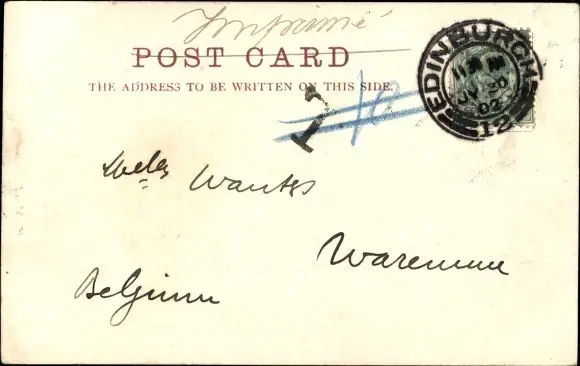 Imprimé
POST CARD
THE ADDRESS TO BE WRITTEN ON THIS SIDE.
EDINBURGH
11 AM
JY 30
02
12
T
10
Melle Wantes
Waremme
Belgium